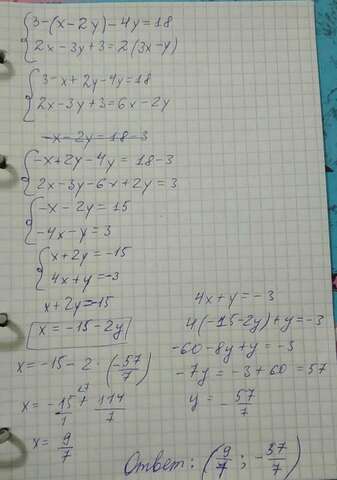 {3-(x-2y)-4y=18
{2x-3y+3=2(3x-y)
{3-x+2y-4y=18
{2x-3y+3=6x-2y
-x-2y=18-3
{-x+2y-4y=18-3
{2x-3y-6x+2y=3
{-x-2y=15
{-4x-y=3
{x+2y=-15
{4x+y=-3
x+2y=-15
x=-15-2y
x=-15-2·(-57/7)
x=-15/1+114/7
x=9/7
4x+y=-3
4(-15-2y)+y=-3
-60-8y+y=-3
-7y=-3+60=57
y=-57/7
Ответ: (9/7; -57/7)